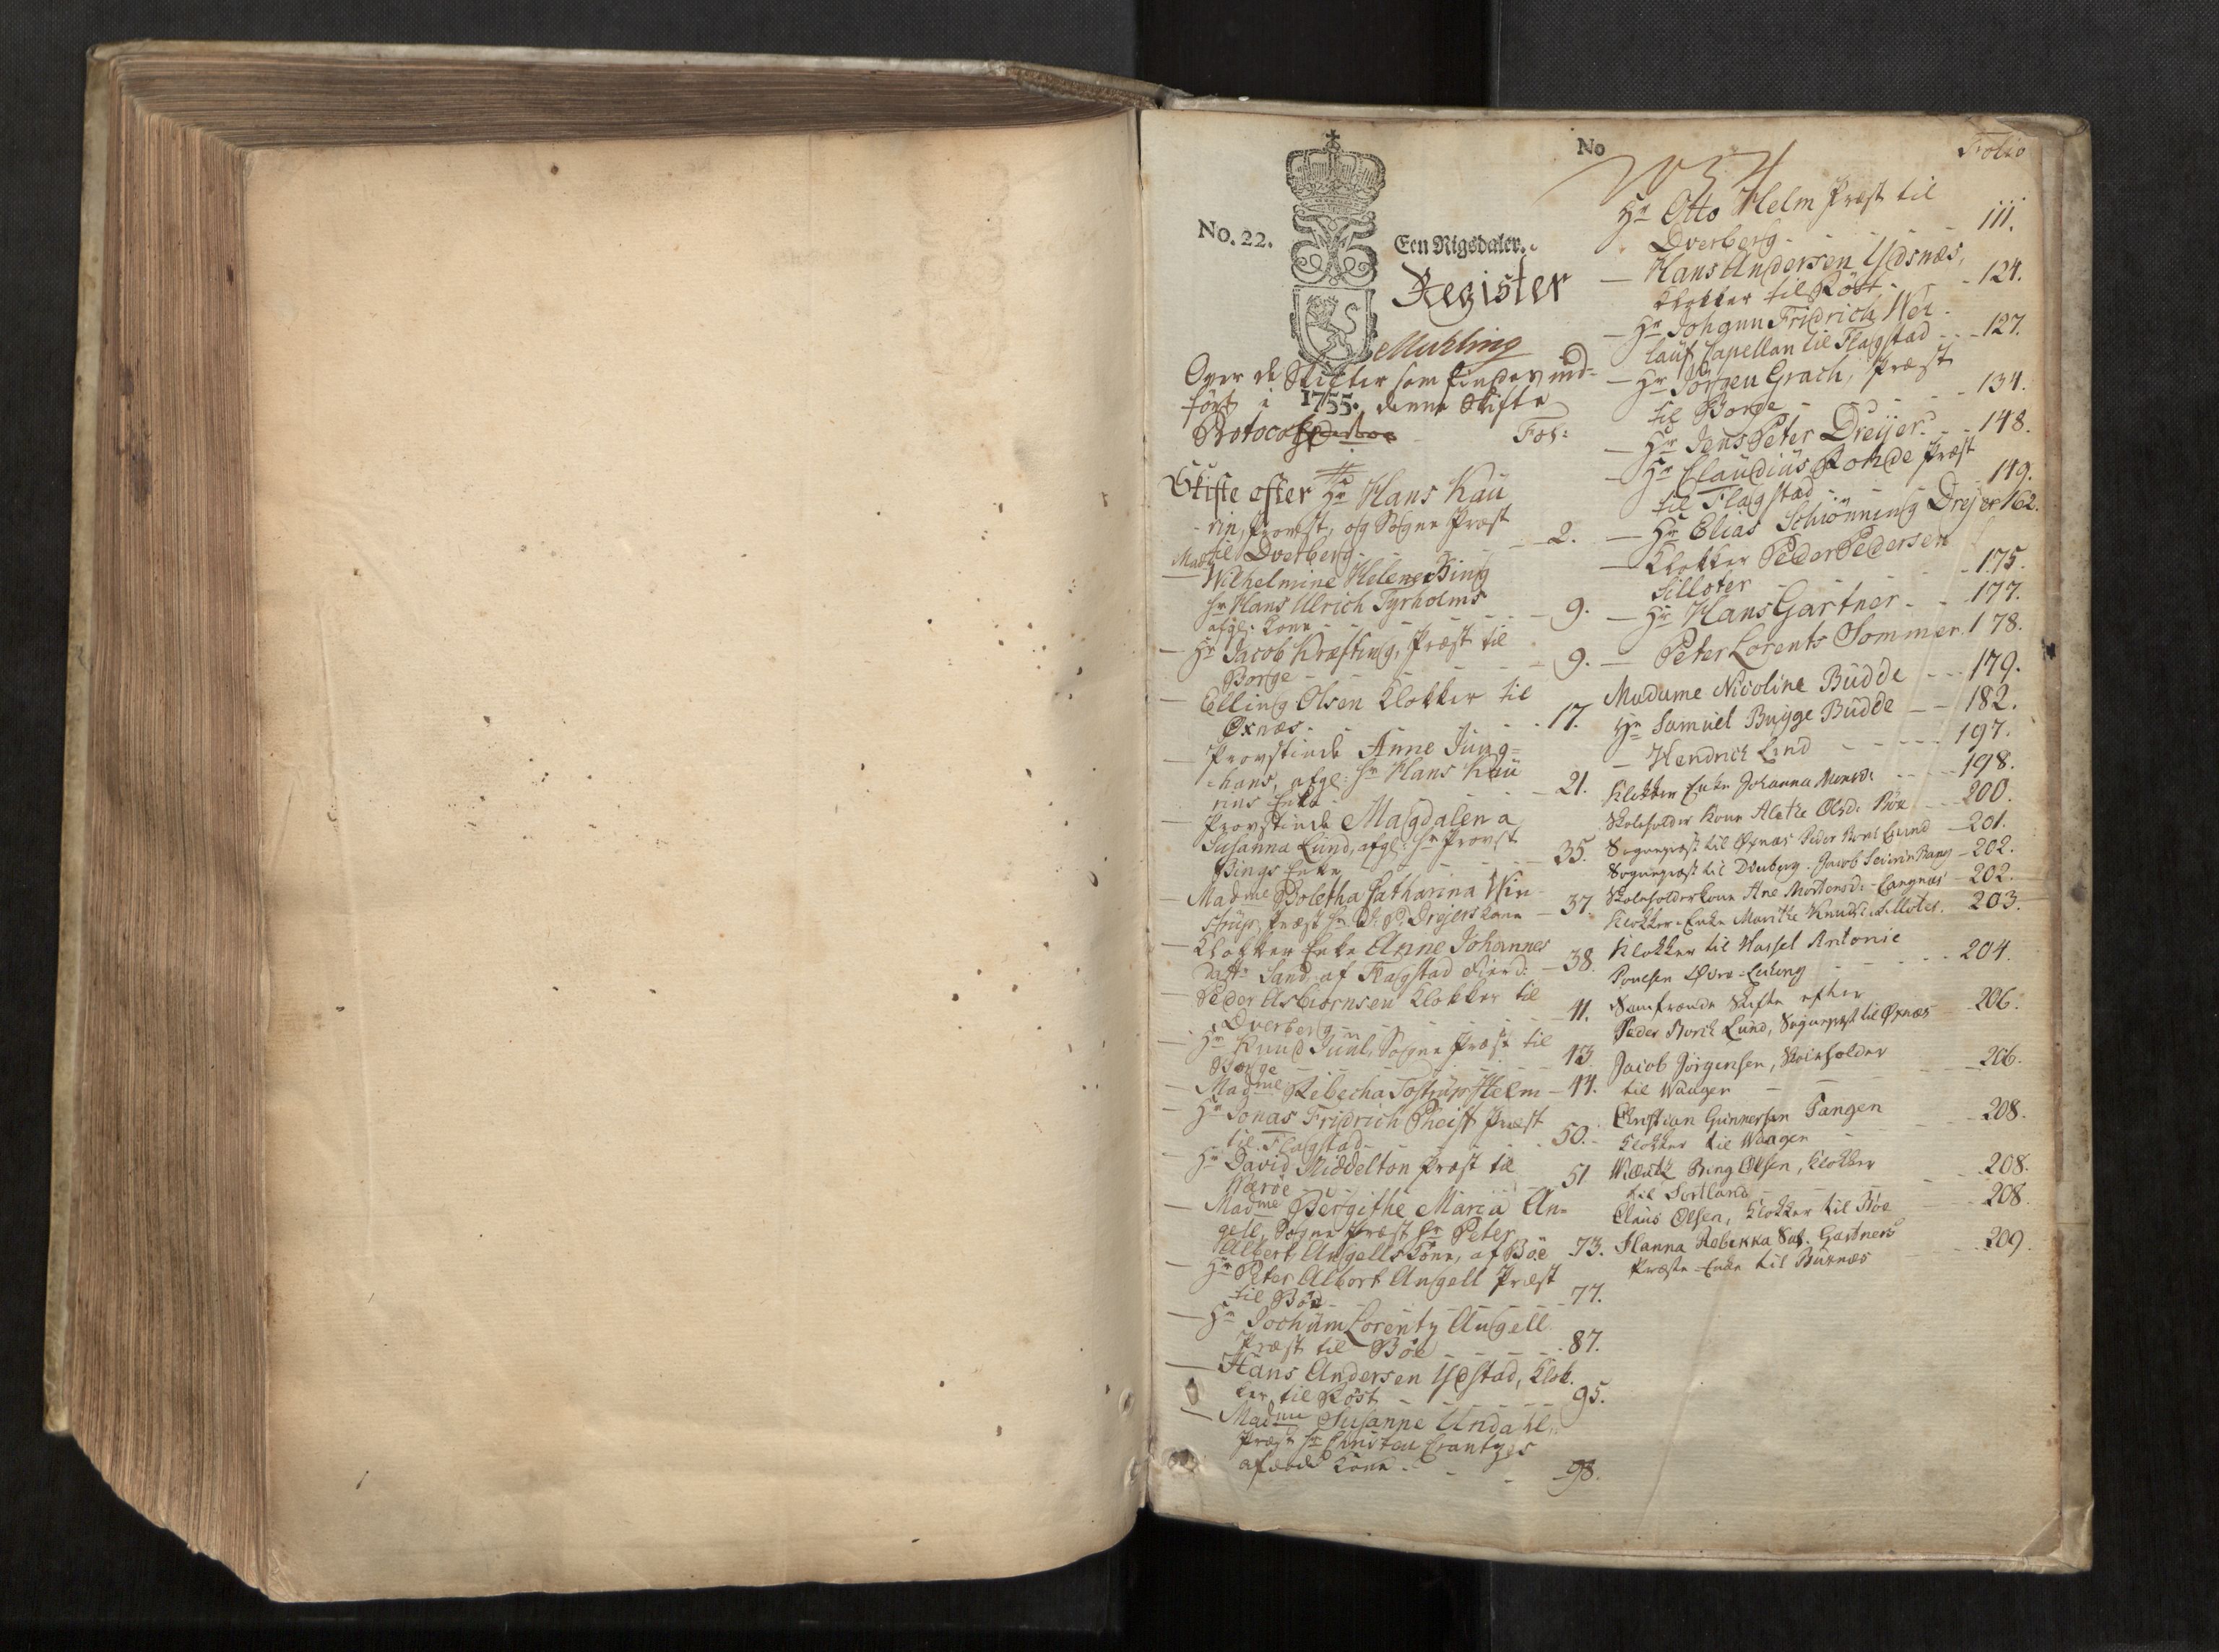 No. 22.
Een Rigsdaler.
Register
Muhling
Over de Skifter som findes ind-
ført i 1755. denne Skifte
Protocol
Fol:
Skifte efter Hr Hans Kau
rin, Provst, og Sogne Præst
til Dverberg - 2.
Madme Wilhelmine Helene Bing
Hr Hans Ulrich Tyrholms
afgl: Kone - - - 9.
— Hr Jacob Kræfting, Præst til
Borge - - - 9.
— Elling Olsen Klokker til
Øxnæs - - - 17.
— Provstinde Anne Jung=
hans, afgl: Hr Hans Kau
rins Enke - - 21.
— Provstinde Magdalena
Susanna Lund, afgl: Hr Provst
Bings Enke - - - 35.
— Madme Boletha Catharina Win-
strup, Præst Hr Drejers Kone - 37.
— Klokker Enke Anne Johannes
datr Sand af Flagstad Fierd: - 38.
— Peder Asbiørnsen Klokker til
Dverberg - - - 41.
— Hr Knud Juul, Sogne Præst til
Borge - - - 43.
— Madme Rebecha Tostrup Helm - 44.
— Hr Jonas Fridrich Pheiff Præst
til Flagstad - - - 50.
— Hr David Middelton Præst til
Værøe - - - 51
— Madme Bergithe Maria An=
gell, Sogne Præst Hr Peter
Albert Angells Kone, af Bøe 73.
— Hr Peter Albert Angell Præst
til Bøe - - - 77.
— Hr Jochum Lorentz Angell
Præst til Bøe - - - 87.
— Hans Andersen Ydstad, Klok-
ker til Røst - - - 95.
— Madme Susanne Undahl,
Præst Hr Christen Crantzes
afdøde Kone - - - 98.
No
Folio
Hr Otto Helm Præst til
Dverberg - - - 111.
— Hans Andersen Ydsnæs,
Klokker til Røst - - 124.
— Hr Johann Fridrich Wei-
lauf, Capellan til Flagstad - - 127.
— Hr Jørgen Grach, Præst
til Borge - - - 134.
— Hr Jens Peter Dreyer - - 148.
— Hr Claudius Rohde Præst
til Flagstad - - - 149.
— Hr Elias Schiønning Drejer 162.
— Klokker Peder Pedersen
Lilloter - - - 175.
— Hr Hans Gartner - - 177.
— Peter Lorents Sommer 178.
Madame Nicoline Budde - - 179.
Hr Samuel Bugge Budde - - 182.
— Hendrich Lind - - - 197.
Klokker Enke Johanna - - 198.
Skoleholder Kone Alethe Olsdr Bøe - - 200.
Sognepræst til Øxnæs Peder Borch Lund - 201.
Sognepræst til Dverberg Jacob Severin Bang - 202.
Skoleholderkone Ane Mortensdr Langnæs - 202.
Klokker-Enke Marithe Knudsdr Lilloter. 203.
Klokker til Hassel Antonie
Povelsen - - - 204.
Samfrænde Skifte efter
Peder Borch Lund, Sognepræst til Øxnæs - 206.
Jacob Jörgensen, Skoleholder
til Waagen - - - 206.
Christian Gunnersen Tangen
Klokker til Waagen - - 208.
Bing Olsen, Klokker
til Sortland - - - 208.
Claus Olsen, Klokker til Bøe - - 208.
Hanna Rebekka Sal. Gartners
Præste-Enke til Buxnæs - - 209.